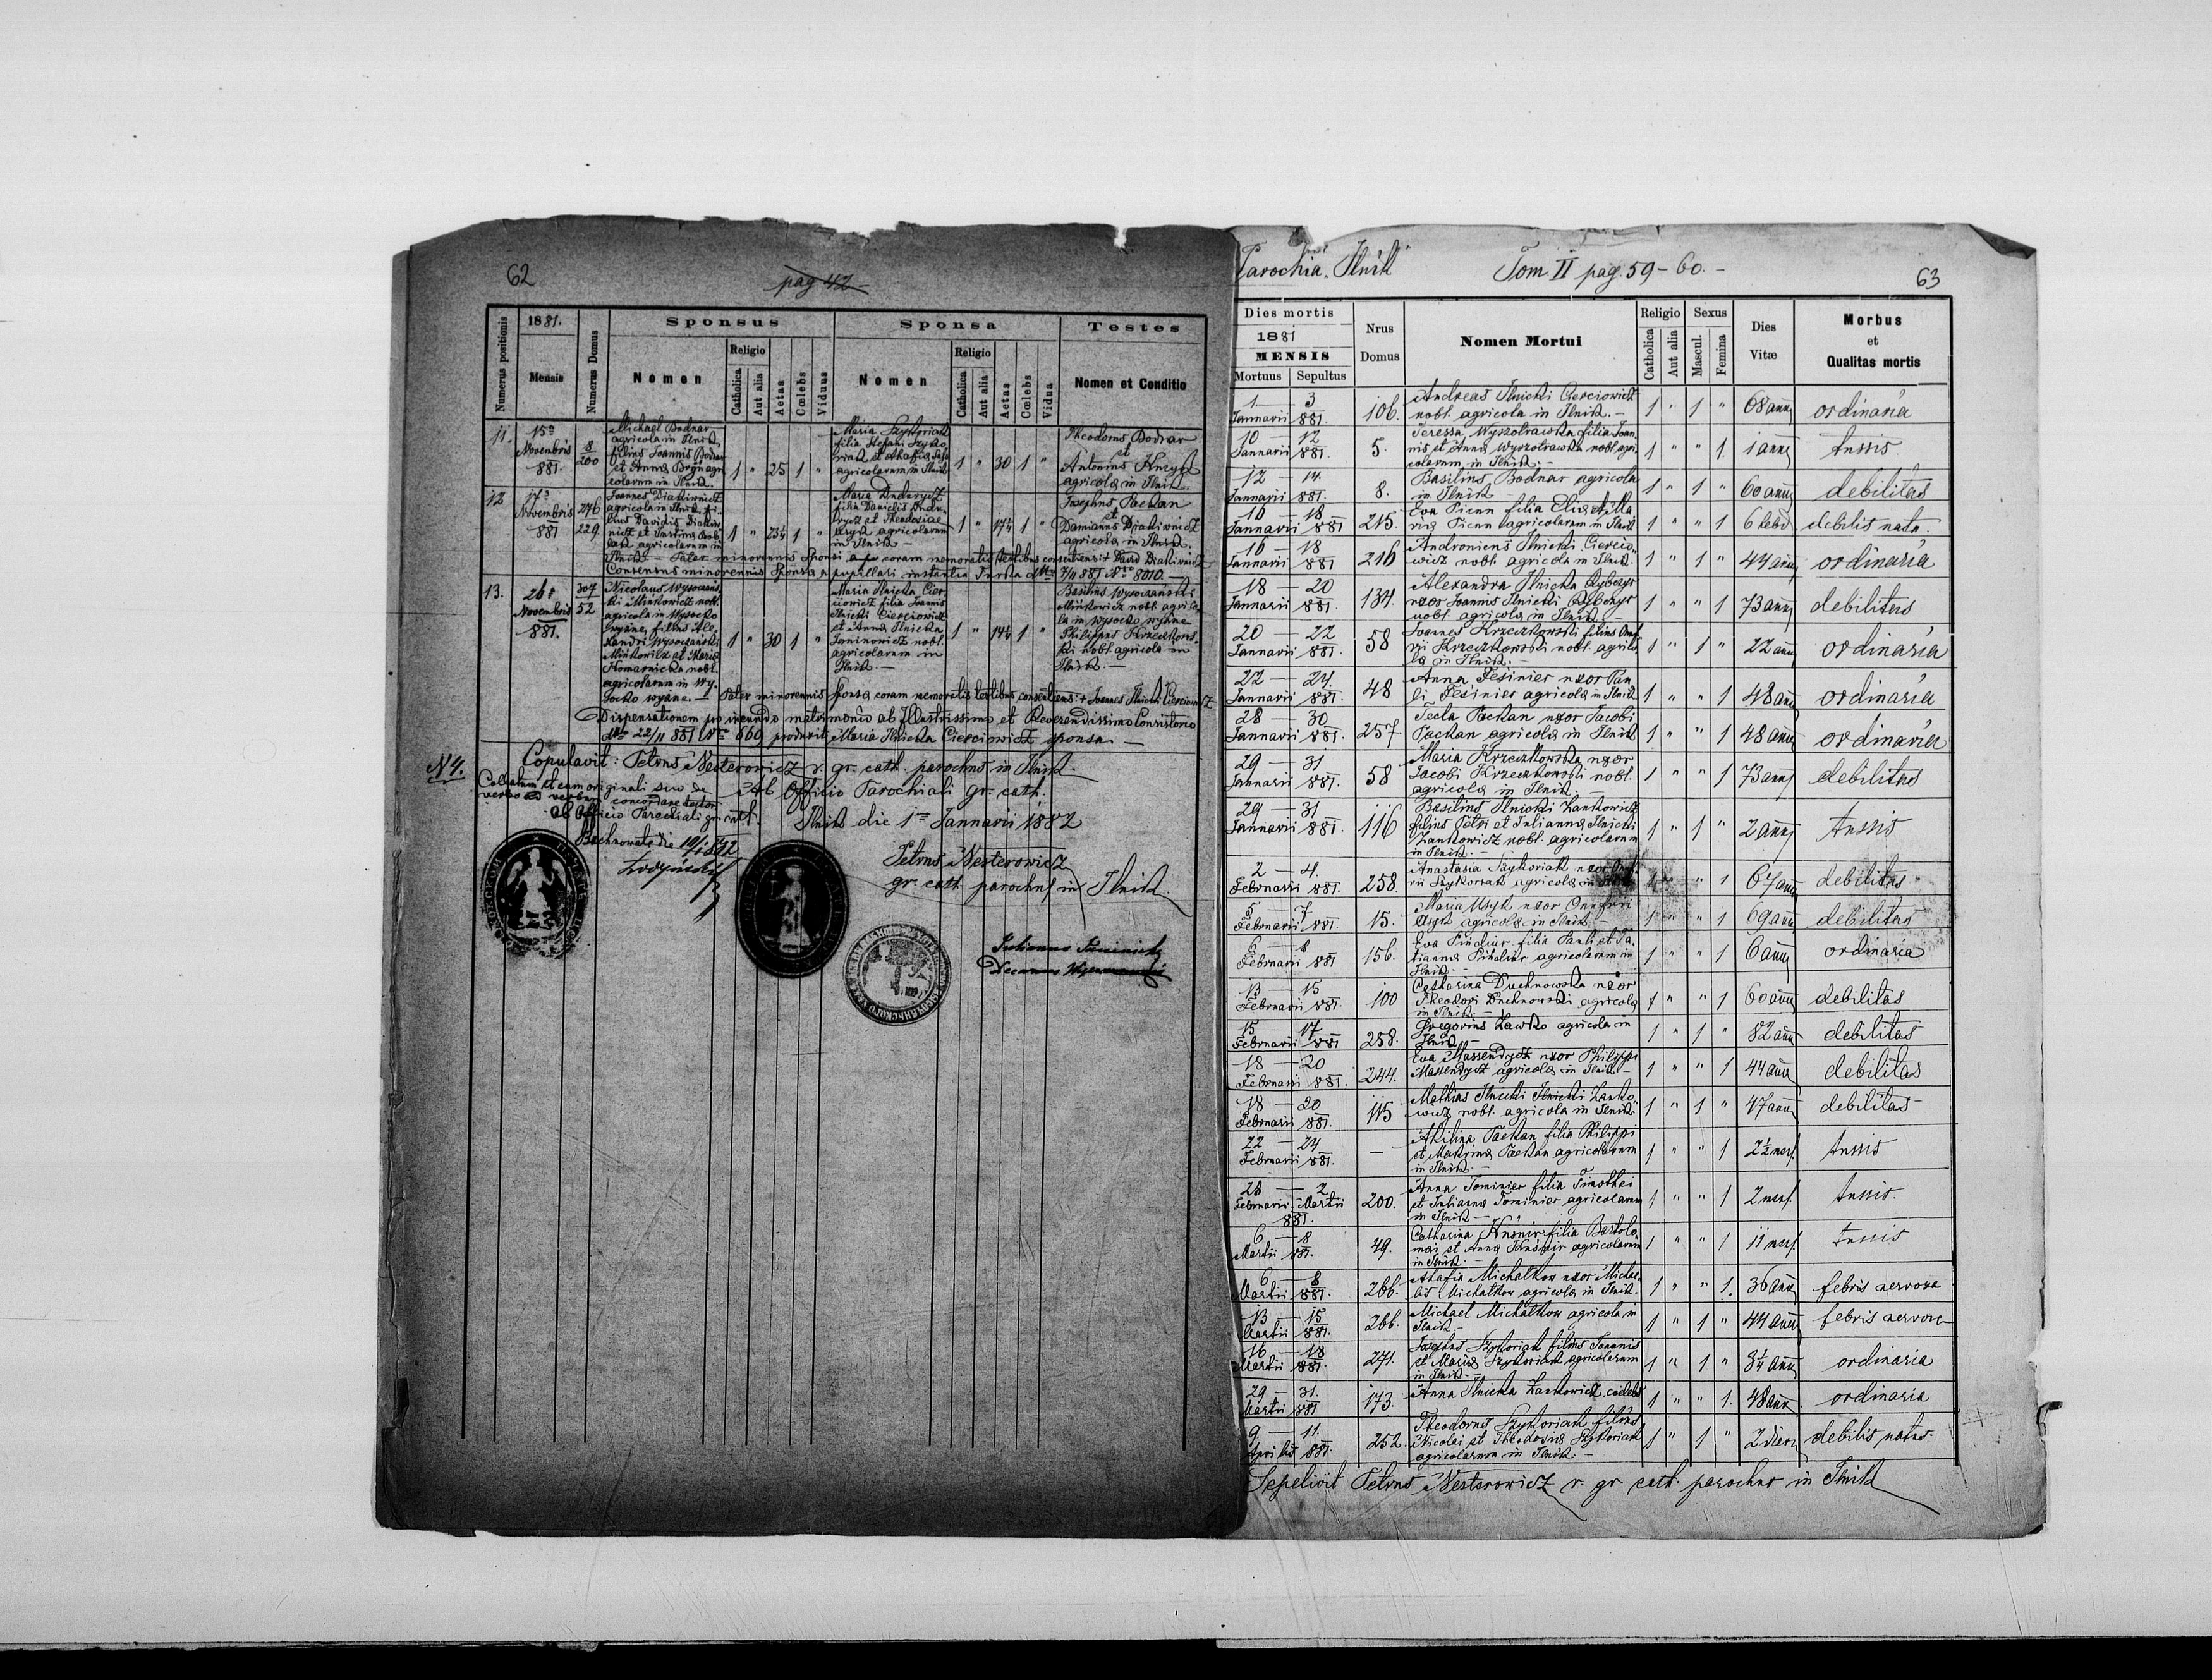 62
pag 42
Numerus positionis
1881.
Mensis
Numerus Domus
Sponsus
Nomen
Religio
Catholica
Aut alia
Aetas
Cœlebs
Viduus
Sponsa
Nomen
Religio
Catholica
Aut alia
Aetas
Cœlebs
Vidua
Testes
Nomen et Conditio
11.
15a
Novembris
881.
8
200
Michael Bodnar
agricola in Ilnik,
filius Joannis Bodnar
et Anna agri
colarum in Ilnik.
1 " 25 1 "
Maria Szykoriak
filia Stefani Szyko
riak et Ahafia
agricolarum in Ilnik
1 " 30 1 "
Theodorus Bodnar
et
Antonius
agricola in Ilnik.
12
17a
Novembris
881
276
229
Joannes Diakiwnicz
agricola in Ilnik, fi
lius Davidis Diakiw
nicz et Justina
agricolarum in
Ilnik
1 " 23¼ 1 "
Maria
filia Danielis
et Theodosia
agricolarum
in Ilnik
1 " 17¼ 1 "
Josephus Packan
et
Damianus Diakiwnicz
agricola in Ilnik.
Pater minorennis Sponsi coram memoratis testibus consentiens + David Diakiwnicz
Consensus minorennis Sponsa a pupillari instantia Turka ddto 7/11 881 Nro 8010.
13.
26
Novembris
881.
307
52
Nicolaus Wysoczań
ski Minkowicz nobl.
agricola in Wysocko
wyżne, filius Ale
xandri Wysoczański
Minkowicz et Maria
Komarnicka nobl.
agricolarum in Wy
socko wyżne.
1 " 30 1 "
Maria Ilnicka Cier
ciowicz filia Joannis
Ilnicki Cierciowicz
et Anna Ilnicka
Janinowicz nobl.
agricolarum in
Ilnik.
1 " 14¼ 1 "
Basilius Wysoczanski
Minkowicz nobl. agrico
la in Wysocko wyżne
Philippus Krzeczkows
ki nobl. agricola in
Ilnik.
Pater minorennis Sponsa coram memoratis testibus consentiens + Joannes Ilnicki Cierciowicz
Dispensationem pro ineundo matrimonio ab Illustrissimo et Reverendissimo Consistorio
ddto 22/11 881 Nro 660 produxit Maria Ilnicka Cierciowicz sponsa.
Copulavit: Petrus Nesterowicz r. gr. cath. parochus in Ilnik.
N 4.
Collatum et cum originali suo de
verbo ad verbum concordare testor
Ab Officio Parochiali gr. cath.
Bachnowate die 10/1 882
Ab Officio Parochiali gr. cath.
Ilnik die 1a Januarii 1882
Petrus Nesterowicz
gr. cath. parochus in Ilnik.
Decanus
Parochia Ilnik
Tom II pag. 59-60.-
63
Dies mortis
1881
MENSIS
Mortuus
Sepultus
Nrus
Domus
Nomen Mortui
Religio
Catholica
Aut alia
Sexus
Mascul.
Femina
Dies
Vitæ
Morbus
et
Qualitas mortis
1 — 3
Januarii 881.
106.
Andreas Ilnicki Cierciowicz
nobl. agricola in Ilnik.-
1 " 1 "
68 annj
ordinaria
10 — 12
Januarii 881.
5.
Teressa Wyszotrawka filia Joan
nis et Anna Wyszotrawka nobl. agri
colarum in Ilnik.-
1 " " 1
1 annj
tussis
12 — 14.
Januarii 881.
8.
Basilius Bodnar agricola
in Ilnik
1 " 1 "
60 annj
debilitas
16 — 18
Januarii 881
215.
Eva Picun filia Elia et Ma
ria Picun agricolarum in Ilnik
1 " " 1
6 hebd
debilis nata.
16 — 18
Januarii 881
216
Andronicus Ilnicki Ciercio
wicz nobl. agricola in Ilnik.
1 " 1 "
44 annj
ordinaria
18 — 20
Januarii 881.
134.
Alexandra Ilnicka Rybczyc
uxor Joannis Ilnicki Rybczyc
nobl. agricola in Ilnik.-
1 " " 1
73 annj
debilitas
20 — 22
Januarii 881.
58
Joannes Krzeczkowski filius Onuf
rii Krzeczkowski nobl. agrico
la in Ilnik.-
1 " 1 "
22 annj
ordinaria
22 — 24.
Januarii 881.
48
Anna Fesinier uxor Pau
li Fesinier agricola in Ilnik
1 " " 1
48 annj
ordinaria
28 — 30
Januarii 881.
257
Tecla Packan uxor Jacobi
Packan agricola in Ilnik
1 " " 1
48 annj
ordinaria
29 — 31
Januarii 881.
58
Maria Krzeczkowska uxor
Jacobi Krzeczkowski nobl.
agricola in Ilnik.-
1 " " 1
73 annj
debilitas
29 — 31
Januarii 881.
116
Basilius Ilnicki Zankowicz
filius Petri et Julianna Ilnicki
Zankowicz nobl. agricolarum
in Ilnik.-
1 " 1 "
2 annj
tussis
2 — 4.
Februarii 881.
258.
Anastasia Szykoriak uxor Onuf
rii Szykoriak agricola in Ilnik
1 " " 1
67 annj
debilitas
5 — 7
Februarii 881.
15.
Maria Usyk uxor Onufrii
Usyk agricola in Ilnik.-
1 " " 1
69 annj
debilitas
6 — 8
Februarii 881
156.
Eva Pindiur filia Pauli et Ta
tianna Pindiur agricolarum in
Ilnik.-
1 " " 1
6 annj
ordinaria
13 — 15
Februarii 881.
100
Catharina Duchnowska uxor
Theodori Duchnowski agricola
in Ilnik.-
1 " " 1
60 annj
debilitas
15 — 17
Februarii 881
258.
Gregorius Zawko agricola in
Ilnik.-
1 " 1 "
82 annj
debilitas
18 — 20
Februarii 881.
244.
Eva Massendycz uxor Philippi
Massendycz agricola in Ilnik.-
1 " " 1
44 annj
debilitas
18 — 20
Februarii 881.
115
Mathias Ilnicki Ilnicki Zanko
wicz nobl. agricola in Ilnik
1 " 1 "
47 annj
debilitas
22 — 24
Februarii 881.
—
Akilina Packan filia Philippi
et Matrinna Packan agricolarum
in Ilnik.-
1 " " 1
2½ mens.
tussis
28 — 2
Februarii Martii
881.
200.
Anna Tominier filia Timothei
et Julianna Tominier agricolarum
in Ilnik.-
1 " " 1
2 mens.
tussis.
6 — 8
Martii 881.
49.
Catharina Kusnir filia Bartolo
mai et Anna Kusnir agricolarum
in Ilnik.-
1 " " 1
11 mens.
tussis
6 — 8
Martii 881.
266.
Ahafia Michalkow uxor Michae
lis Michalkow agricola in Ilnik.
1 " " 1.
36 annj
febris nervosa
13 — 15
Martii 881.
266.
Michael Michalkow agricola in
Ilnik.-
1 " 1 "
44 annj
febris nervosa
16 — 18
Martii 881.
271.
Josephus Szykoriak filius Joannis
et Maria Szykoriak agricolarum
in Ilnik.-
1 " 1 "
3¼ annj
ordinaria
29 — 31.
Martii 881
173.
Anna Ilnicka Zankowicz, cœlebs
1 " " 1.
48 annj
ordinaria
9 — 11.
Aprilis 881.
252.
Theodorus Szykoriak filius
Nicolai et Theodosia Szykoriak
agricolarum in Ilnik.-
1 " 1 "
2 dies
debilis natus.
Sepelivit Petrus Nesterowicz r. gr. cath. parochus in Ilnik